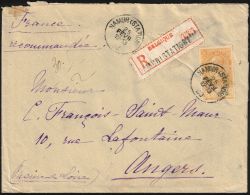 France
recommandée
NAMUR (STATION)
BELGIQUE
R
NAMUR (STATION)
Monsieur
C. François-Saint Maur
10, rue Lafontaine
Angers.
(Maine & Loire)